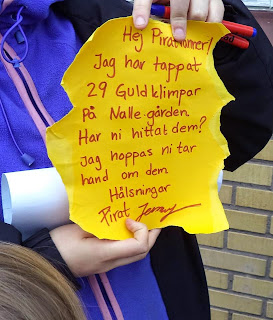 Hej Piratvänner!
Jag har tappat
29 Guldklimpar
På Nallegården.
Har ni hittat dem?
Jag hoppas ni tar
hand om dem
Hälsningar
Pirat Jenny